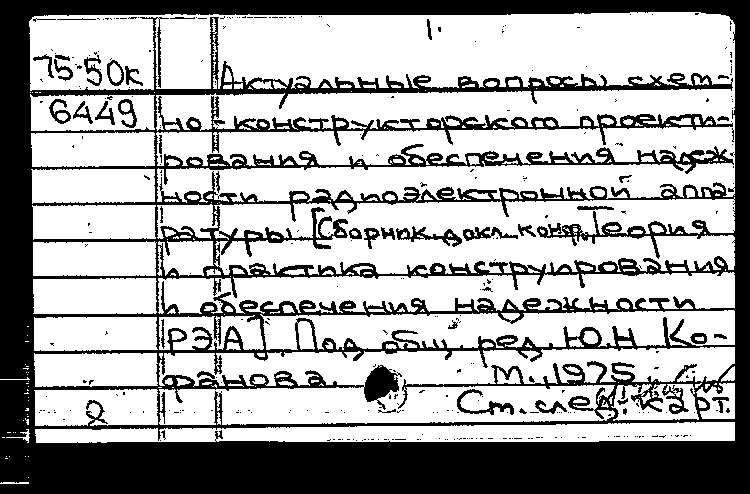 1.
75-50к Актуальные вопросы схем-
6449 но-конструкторского проекти-
рования и обеспечения надеж
ности радиоэлектронной аппа-
ратуры [Сборник докл. конф. "Теория
и практика конструирования
и обеспечения надежности
РЭА]. Под общ. ред. Ю.Н. Ко-
фанова. М., 1975.
2 Ст. след. карт.